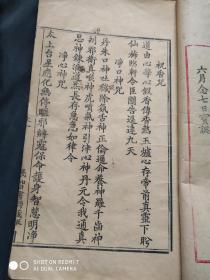 祝香咒
道由心學心假香傳香爇玉爐心存帝前真靈下盻
仙旆臨軒令臣關告逕達九天
淨口神咒
丹朱口神吐穢除氛舌神正倫通命養神羅千齒神
却邪衛真喉神虎賁氣神引津心神丹元令我通真
思神鍊液道炁長存急急如律令
淨心神咒
太上台星應變無停驅邪縛魅保命護身智慧明淨
六月念七日